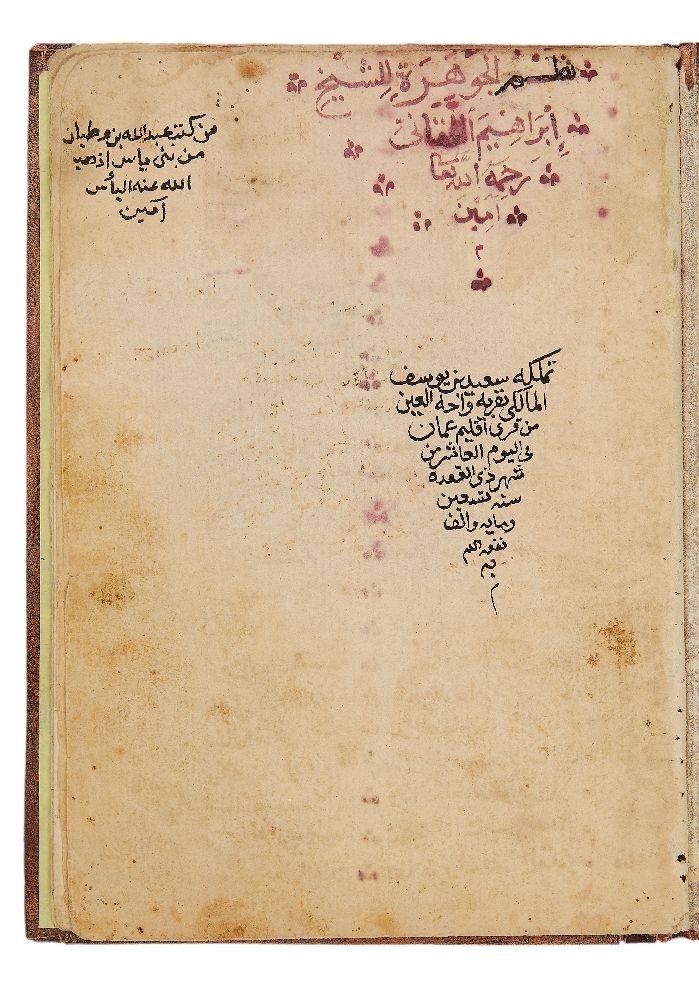 نظم الجوهرة للشيخ
إبراهيم اللقاني
رحمة الله تعا
آمين
م
من كتب عبدالله بن وطبان
من بني ياس إذهب
الله عنه البأس
آمين
تملكه سعيد بن يوسف
المالكي بقرية واحة العين
من قرى اقليم عمان
في اليوم العاشر من
شهر ذي القعدة
سنه تسعين
ومايه والف
نفعه الله
به
م